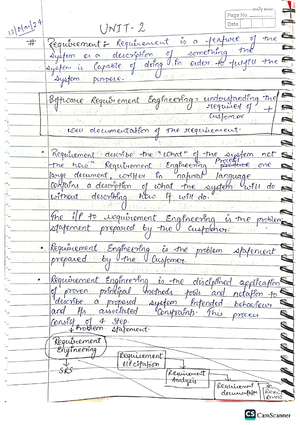 Page No.
Date
13/Mar/24
UNIT-2
# Requirement :- Requirement is a feature of the
system or a description of something the
system is capable of doing in order to fulfil the
system purpose.
Software Requirement Engineering = understanding the
required of +
customer
documentation of the requirement.
• Requirement describe the "what" of the system not
the "how" Requirement Engineering Process one
large document, written in natural language
contains a description of what the system will do
without describing how it will do.
The i/p to requirement Engineering is the problem
statement prepared by the customer.
• Requirement Engineering is the problem statement
prepared by the customer
• Requirement Engineering is the disciplined application
of proven principal methods tools and notation to
describe a proposed system intended behaviour
and its associated constraints. This process
consist of 4 step.
↓ Problem statement
Requirement
Engineering
↓
SRS
Requirement
elicitation
Requirement
Analysis
Requirement
documentation
CS CamScanner